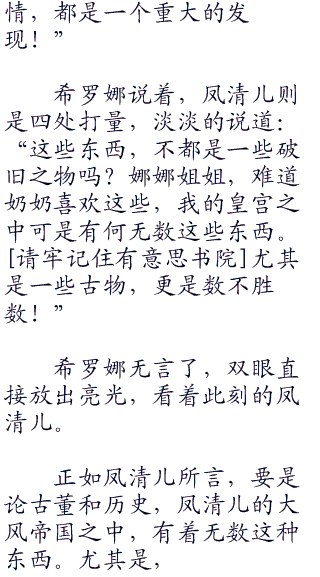 情，都是一个重大的发
现！”
希罗娜说着，凤清儿则
是四处打量，淡淡的说道：
“这些东西，不都是一些破
旧之物吗？娜娜姐姐，难道
奶奶喜欢这些，我的皇宫之
中可是有何无数这些东西。
[请牢记住有意思书院]尤其
是一些古物，更是数不胜
数！”
希罗娜无言了，双眼直
接放出亮光，看着此刻的凤
清儿。
正如凤清儿所言，要是
论古董和历史，凤清儿的大
风帝国之中，有着无数这种
东西。尤其是，